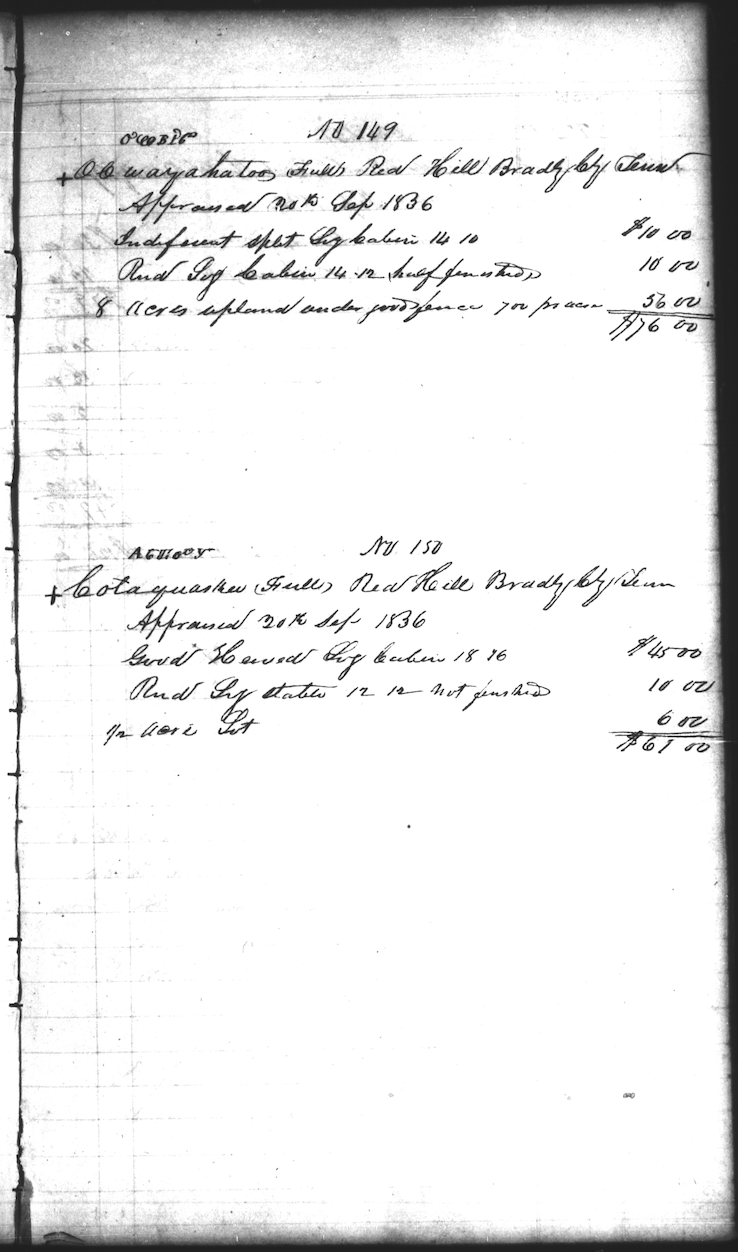 No 149
+ Oowayahatoo, (Full) Red Hill Bradly Cty Tenn
Appraised 20th Sep 1836
Indeferent split Log Cabin 14 10 $10 00
Rnd Log Cabin 14-12 half finished 10 00
8 acres upland under good fence 7 00 pr acre 56 00
$76 00
No 150
+ Cotaquaskee (Full) Red Hill Bradly Cty Tenn
Appraised 20th Sep 1836
Good Hewed Log Cabin 18 16 $45 00
Rnd Log stable 12 12 not finished 10 00
1/2 acre Lot 6 00
$61 00